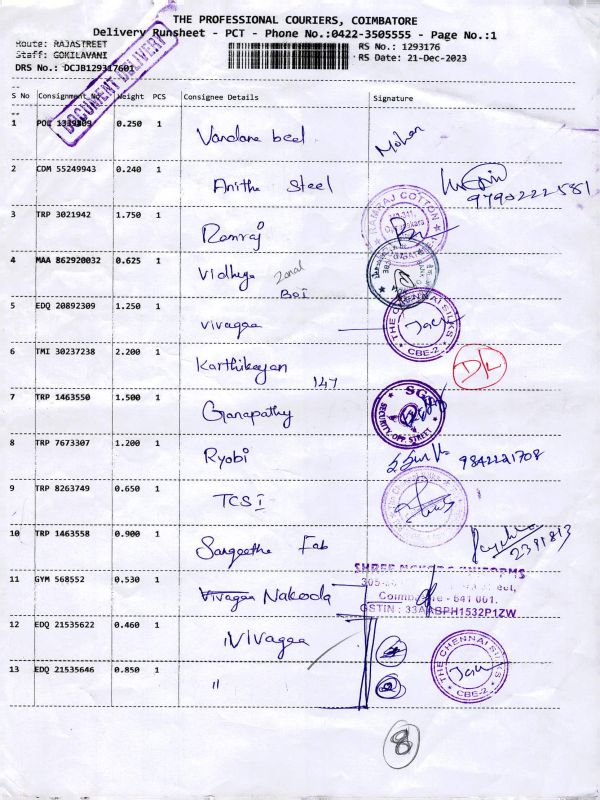 THE PROFESSIONAL COURIERS, COIMBATORE
Delivery Runsheet - PCT - Phone No.:0422-3505555 - Page No.:1
Route: RAJASTREET
Staff: GOKILAVANI
DRS No.: DCJB129317601
RS No.: 1293176
RS Date: 21-Dec-2023
DOCUMENT DELIVERY
S No Consignment No Weight PCS Consignee Details Signature
1 0.250 1 Vandana beel Mohan
2 CDM 55249943 0.240 1 Anitha Steel 9790222581
3 TRP 3021942 1.750 1 Ramraj RAMRAJ COTTON
4 MAA 862920032 0.625 1 Vidhya Zonal
BOI
5 EDQ 20892309 1.250 1 Vivagaa THE CHENNAI SILKS CBE-2
6 TMI 30237238 2.200 1 Karthikeyan D/L
147
7 TRP 1463550 1.500 1 Ganapathy SECURITY OPP STREET
8 TRP 7673307 1.200 1 Ryobi 9842221708
9 TRP 8263749 0.650 1 TCS I
10 TRP 1463558 0.900 1 Sangeetha Fab 2391813
11 GYM 568552 0.530 1 Vivagaa Nakoda
Coimbatore - 641 001.
GSTIN : 33AASPH1532P1ZW
12 EDQ 21535622 0.460 1 Vivagaa
13 EDQ 21535646 0.850 1 "
THE CHENNAI SILKS CBE-2
8